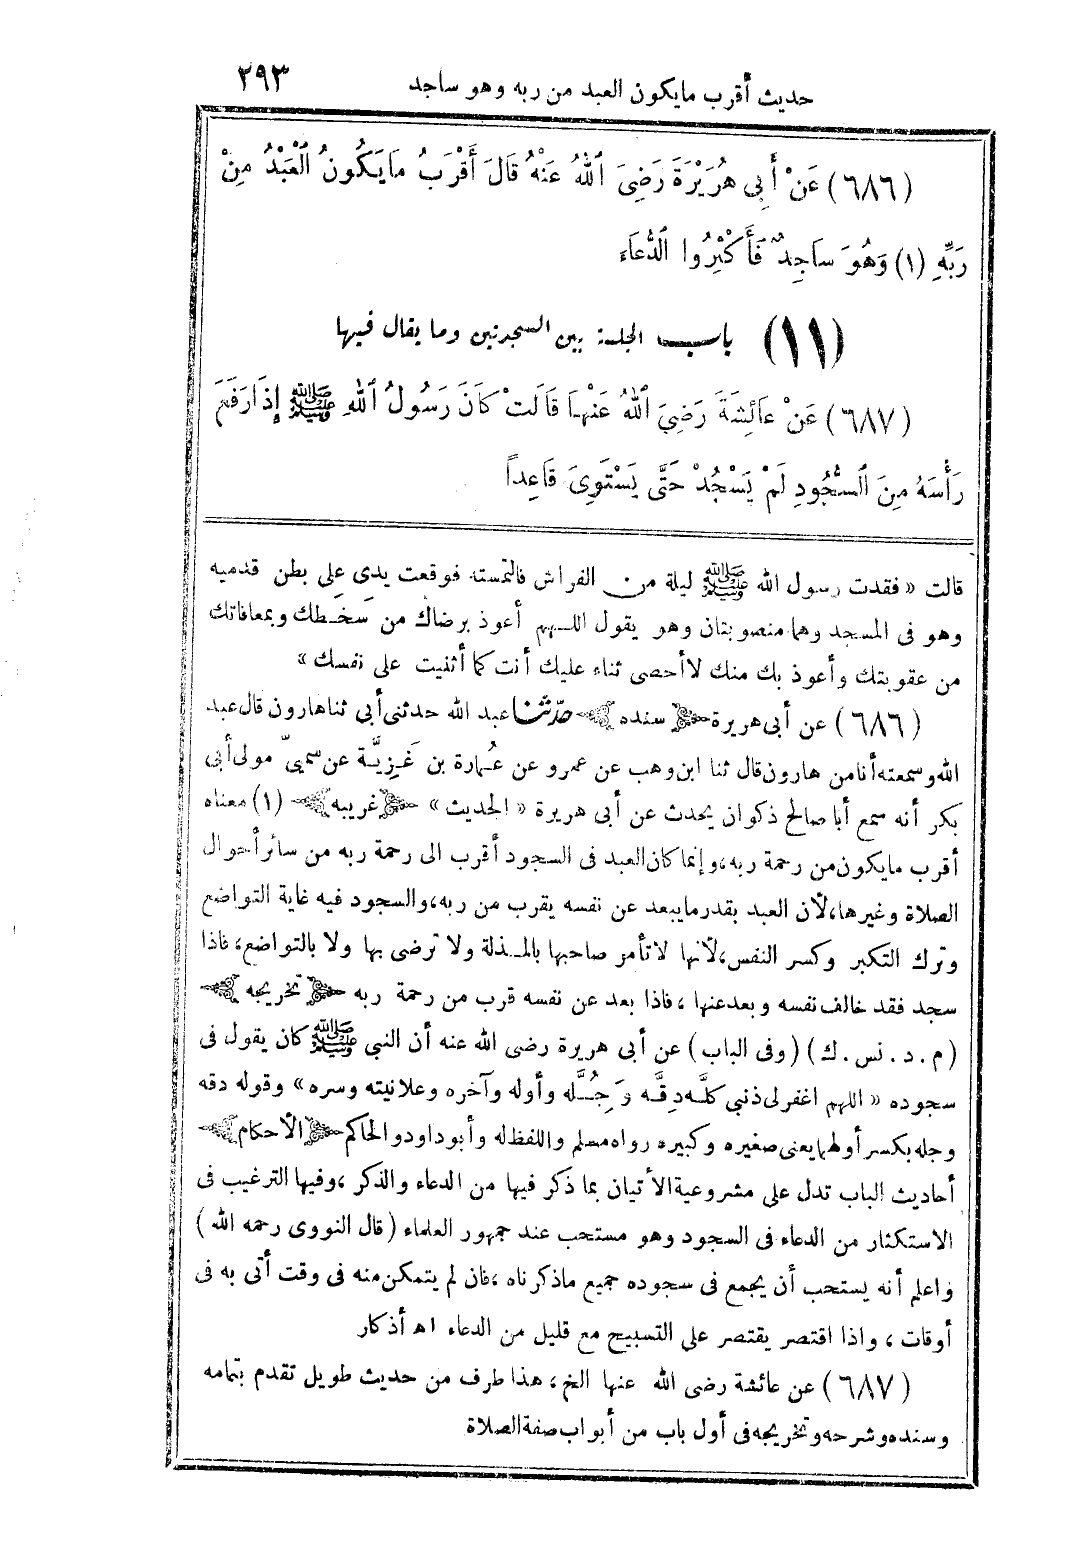 حديث أقرب مايكون العبد من ربه وهو ساجد ٢٩٣
(٦٨٦) عَنْ أَبِي هُرَيْرَةَ رَضِيَ ٱللهُ عَنْهُ قَالَ أَقْرَبُ مَايَكُونُ ٱلْعَبْدُ مِنْ
رَبِّهِ (١) وَهُوَ سَاجِدٌ فَأَكْثِرُوا ٱلدُّعَاءَ
(١١) باب الجلسة بين السجدتين وما يقال فيها
(٦٨٧) عَنْ عَائِشَةَ رَضِيَ ٱللهُ عَنْهَا قَالَتْ كَانَ رَسُولُ ٱللهِ ﷺ إِذَا رَفَعَ
رَأْسَهُ مِنَ ٱلسُّجُودِ لَمْ يَسْجُدْ حَتَّى يَسْتَوِىَ قَاعِداً
قالت « فقدت رسول الله ﷺ ليلة من الفراش فالتمسته فوقعت يدى على بطن قدميه
وهو فى المسجد وهما منصوبتان وهو يقول اللهم أعوذ برضاك من سخطك وبمعافاتك
من عقوبتك وأعوذ بك منك لاأحصى ثناء عليك أنت كما أثنيت على نفسك »
(٦٨٦) عن أبى هريرة ﴿ سنده ﴾ حدّثنا عبد الله حدثنى أبى ثنا هارون قال عبد
الله وسمعته أنا من هارون قال ثنا ابن وهب عن عمرو عن عُمارة بن غَزِيَّة عن سمىّ مولى أبى
بكر أنه سمع أبا صالح ذكوان يحدث عن أبى هريرة « الحديث » ﴿ غريبه ﴾ (١) معناه
أقرب مايكون من رحمة ربه، وإنما كان العبد فى السجود أقرب الى رحمة ربه من سائر أحوال
الصلاة وغيرها، لأن العبد بقدر مايبعد عن نفسه يقرب من ربه، والسجود فيه غاية التواضع
وترك التكبر وكسر النفس، لأنها لا تأمر صاحبها بالمذلة ولا ترضى بها ولا بالتواضع، فاذا
سجد فقد خالف نفسه وبعد عنها، فاذا بعد عن نفسه قرب من رحمة ربه ﴿ تخريجه ﴾
(م . د . نس . ك) (وفى الباب) عن أبى هريرة رضى الله عنه أن النبى ﷺ كان يقول فى
سجوده « اللهم اغفر لى ذنبى كلَّه دِقَّه وَجِلَّه وأوله وآخره وعلانيته وسره » وقوله دقه
وجله بكسر أولهما يعنى صغيره وكبيره رواه مسلم واللفظ له وأبو داود والحاكم ﴿ الأحكام ﴾
أحاديث الباب تدل على مشروعية الأتيان بما ذكر فيها من الدعاء والذكر، وفيها الترغيب فى
الاستكثار من الدعاء فى السجود وهو مستحب عند جمهور العلماء (قال النووى رحمه الله)
واعلم أنه يستحب أن يجمع فى سجوده جميع ماذكرناه، فان لم يتمكن منه فى وقت أتى به فى
أوقات، واذا اقتصر يقتصر على التسبيح مع قليل من الدعاء اه أذكار
(٦٨٧) عن عائشة رضى الله عنها الخ، هذا طرف من حديث طويل تقدم بتمامه
وسنده وشرحه وتخريجه فى أول باب من أبواب صفة الصلاة